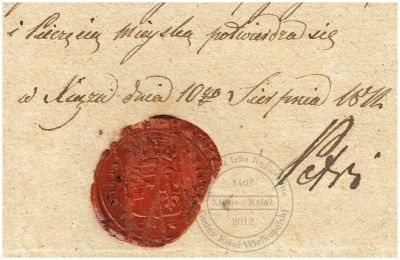 i Pieczęcią mieyską potwierdza się
w Xiążu dnia 10go Sierpnia
Petri
Izba Regionalna
1407
Książ
2012
Gminy Książ Wielkopolski